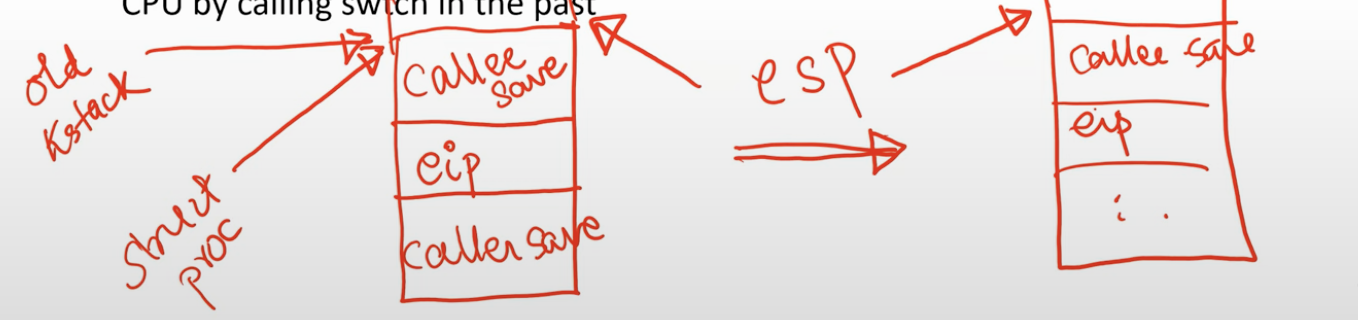 CPU by calling swtch in the past
old
Kstack
struct
proc
callee
save
eip
caller save
esp
callee save
eip
: .